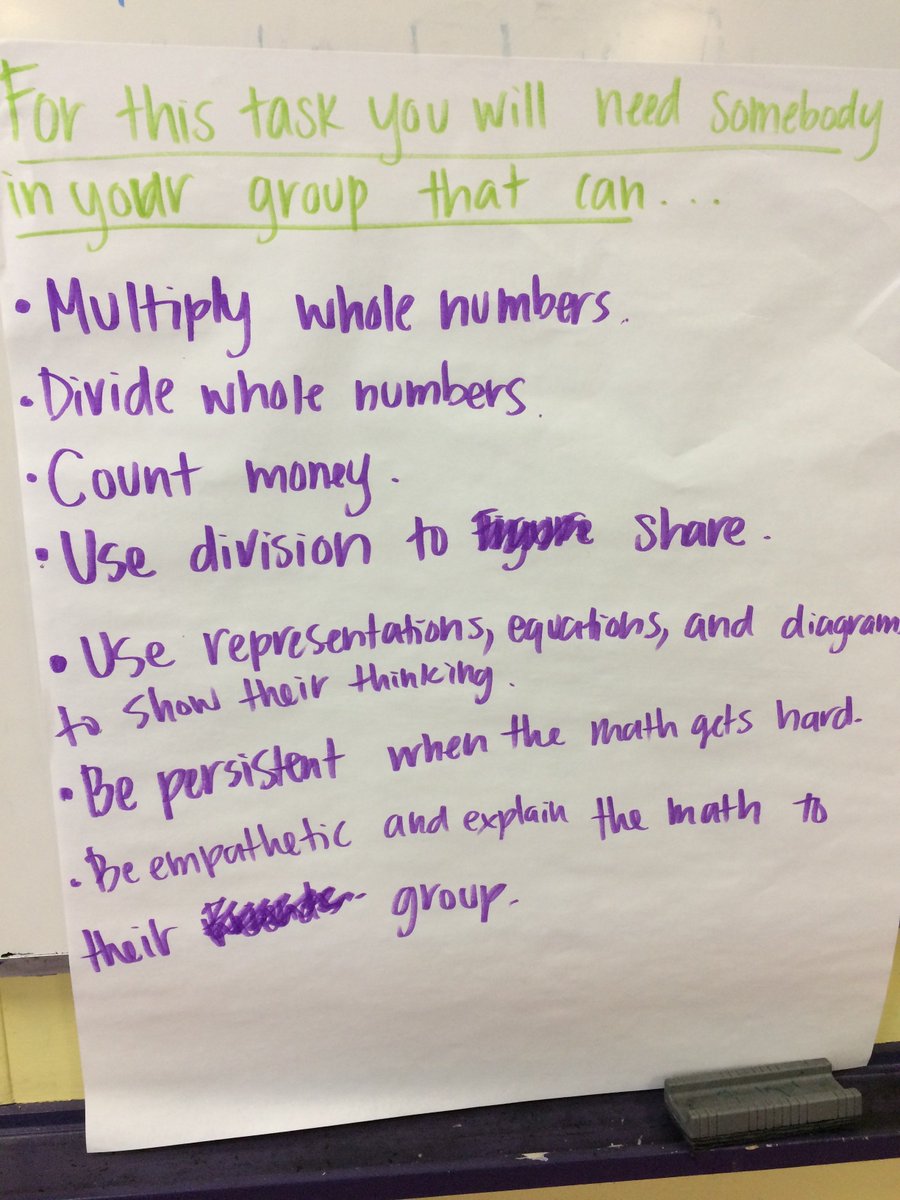 For this task you will need somebody
in your group that can....
• Multiply whole numbers.
• Divide whole numbers.
• Count money.
• Use division to share.
• Use representations, equations, and diagram
to show their thinking.
• Be persistent when the math gets hard.
• Be empathetic and explain the math to
their group.